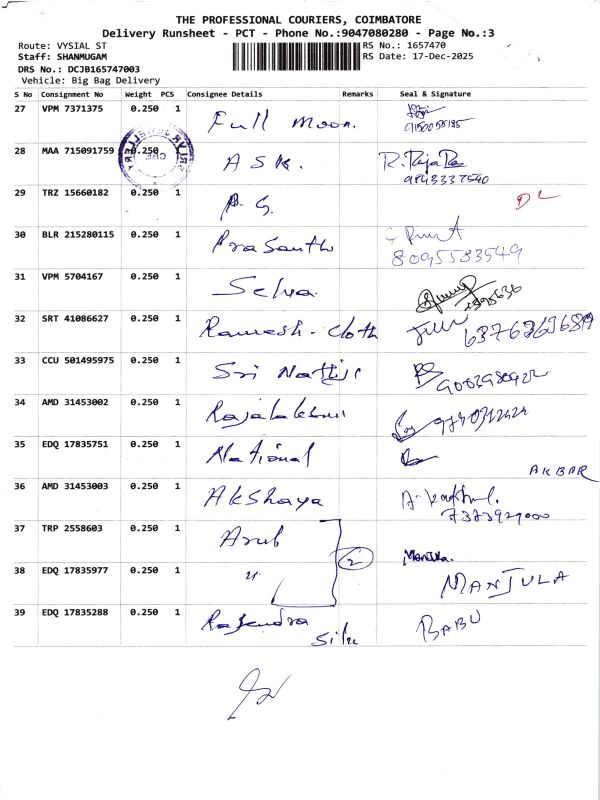 THE PROFESSIONAL COURIERS, COIMBATORE
Delivery Runsheet - PCT - Phone No.:9047080280 - Page No.:3
Route: VYSIAL ST
RS No.: 1657470
Staff: SHANMUGAM
RS Date: 17-Dec-2025
DRS No.: DCJB165747003
Vehicle: Big Bag Delivery
S No Consignment No Weight PCS Consignee Details Remarks Seal & Signature
27 VPM 7371375 0.250 1 Full Moon.
28 MAA 715091759 0.250 1 ASK. R. Raja
9843337540
29 TRZ 15660182 0.250 1 DL
30 BLR 215280115 0.250 1 Prasanth
8095583549
31 VPM 5704167 0.250 1 Selva.
32 SRT 41086627 0.250 1 Ramesh - cloth 6376369689
33 CCU 501495975 0.250 1 Sri Nattiji
34 AMD 31453002 0.250 1 Rajalakshmi
35 EDQ 17835751 0.250 1 National
AKBAR
36 AMD 31453003 0.250 1 Akshaya
7373929000
37 TRP 2558603 0.250 1 Manjula.
2
38 EDQ 17835977 0.250 1 " MANJULA
39 EDQ 17835288 0.250 1 Rajendra BABU